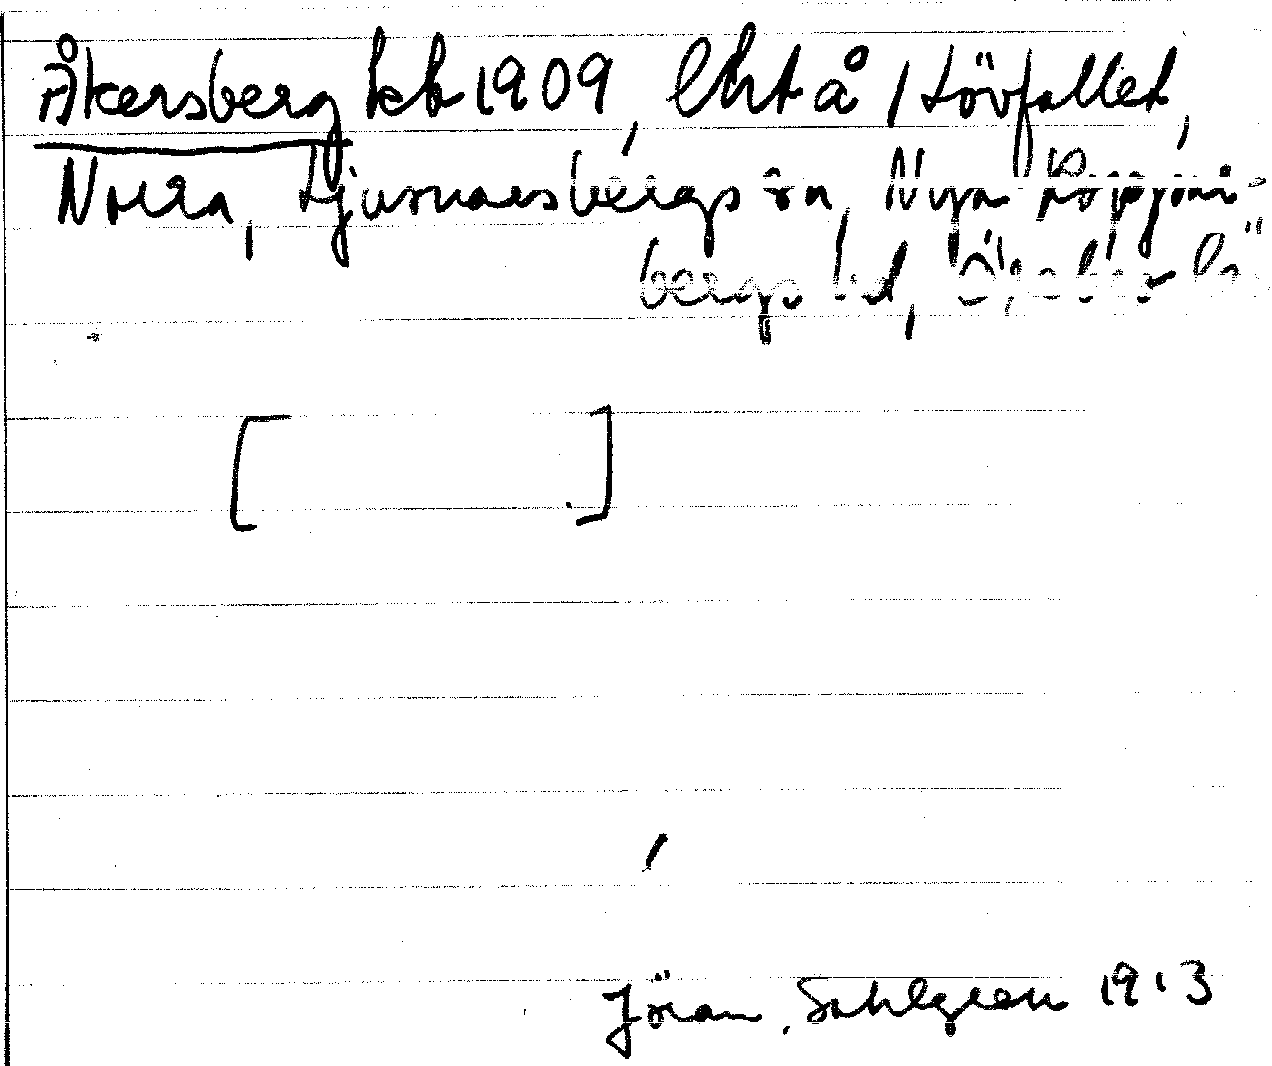 Åkersberg kb 1909, lht å Hörfallet,
Norra, Ljusnarsbergs sn, Nya Kopparbergs bd, Örebro lä
[ ]
Jöran Sahlgren 1913